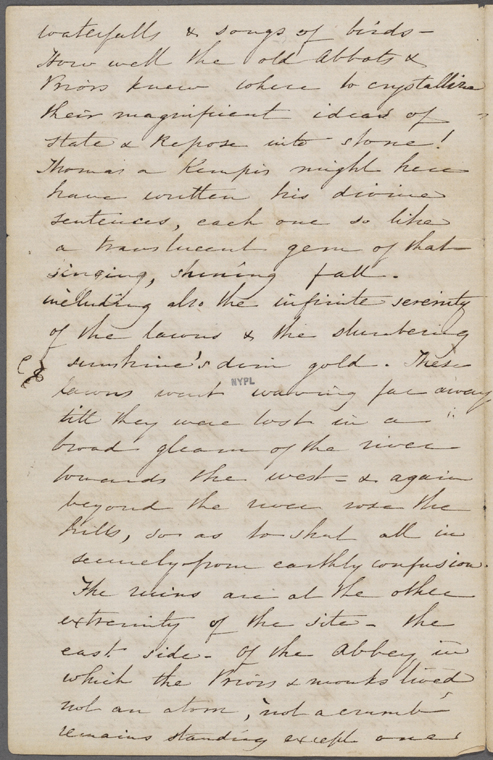 waterfalls & songs of birds –
How well the old Abbots &
Priors knew where to crystallize
their magnificent ideas of
State & Repose into stone!
Thomas a Kempis might here
have written his divine
sentences, each one so like
a translucent gem of that
singing, shining fall.
including also the infinite serenity
of the lawns & the slumbering
sunshine's dim gold. These
NYPL
lawns went waving far away
till they were lost in a
broad gleam of the river
towards the west – & again
beyond the river rose the
hills, so as to shut all in
securely from earthly confusion.
The ruins are at the other
extremity of the site – the
east side – Of the Abbey in
which the Priors & monks lived
not an atom, not a crumb
remains standing except one